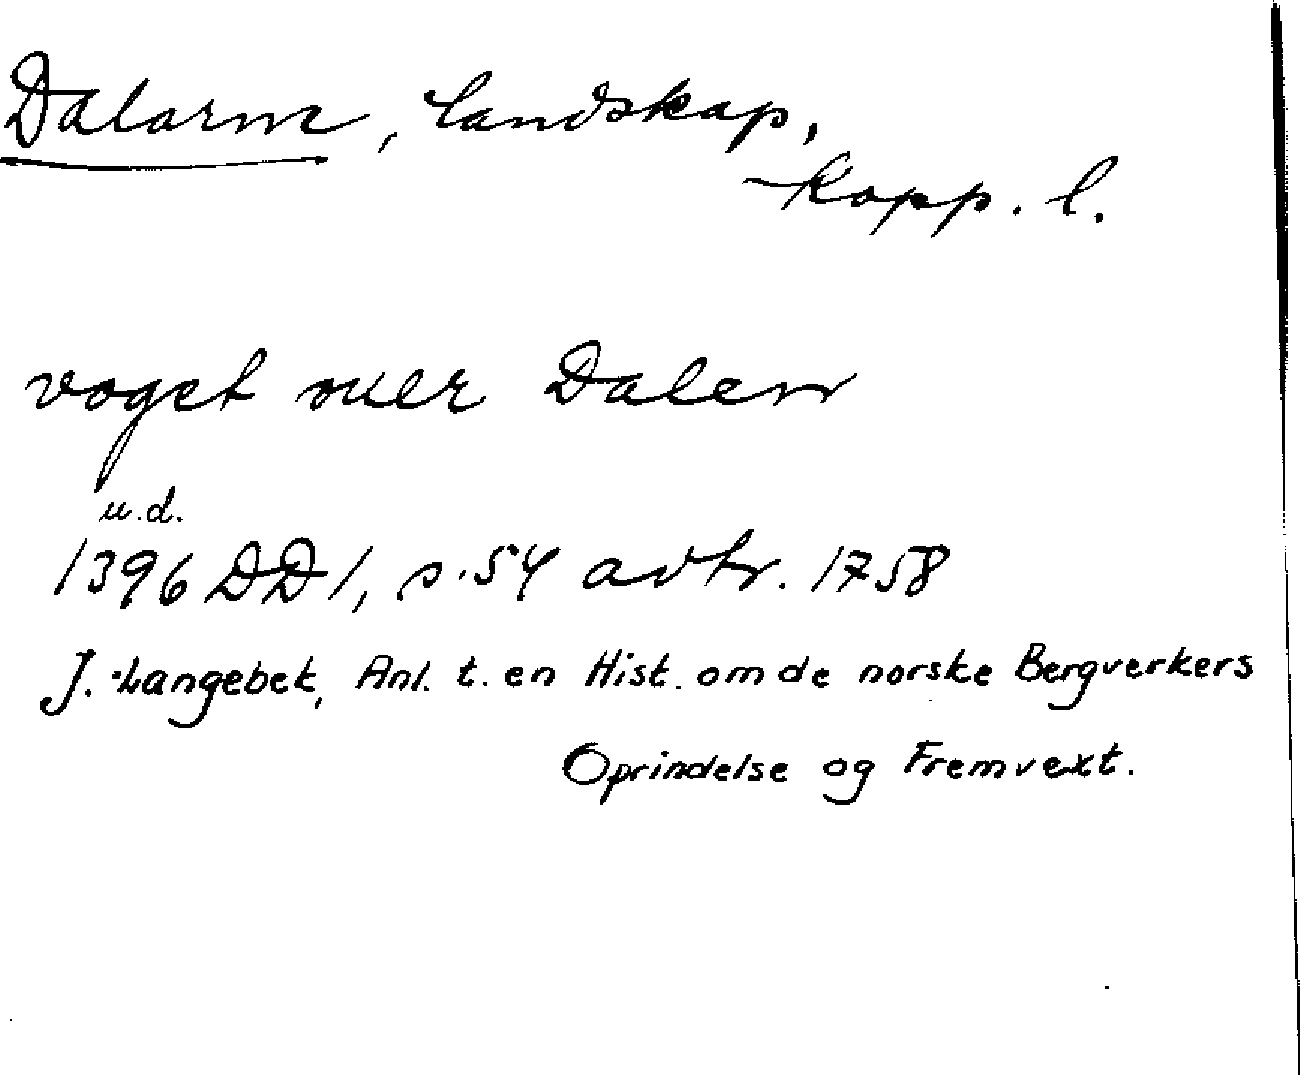 Dalarne, landskap,
Kopp. l.
voget over Dalen
u.d.
1396 DD 1, s. 54 avtr. 1758
J. Langebek, Anl. t. en Hist. om de norske Bergverkers
Oprindelse og Fremvext.